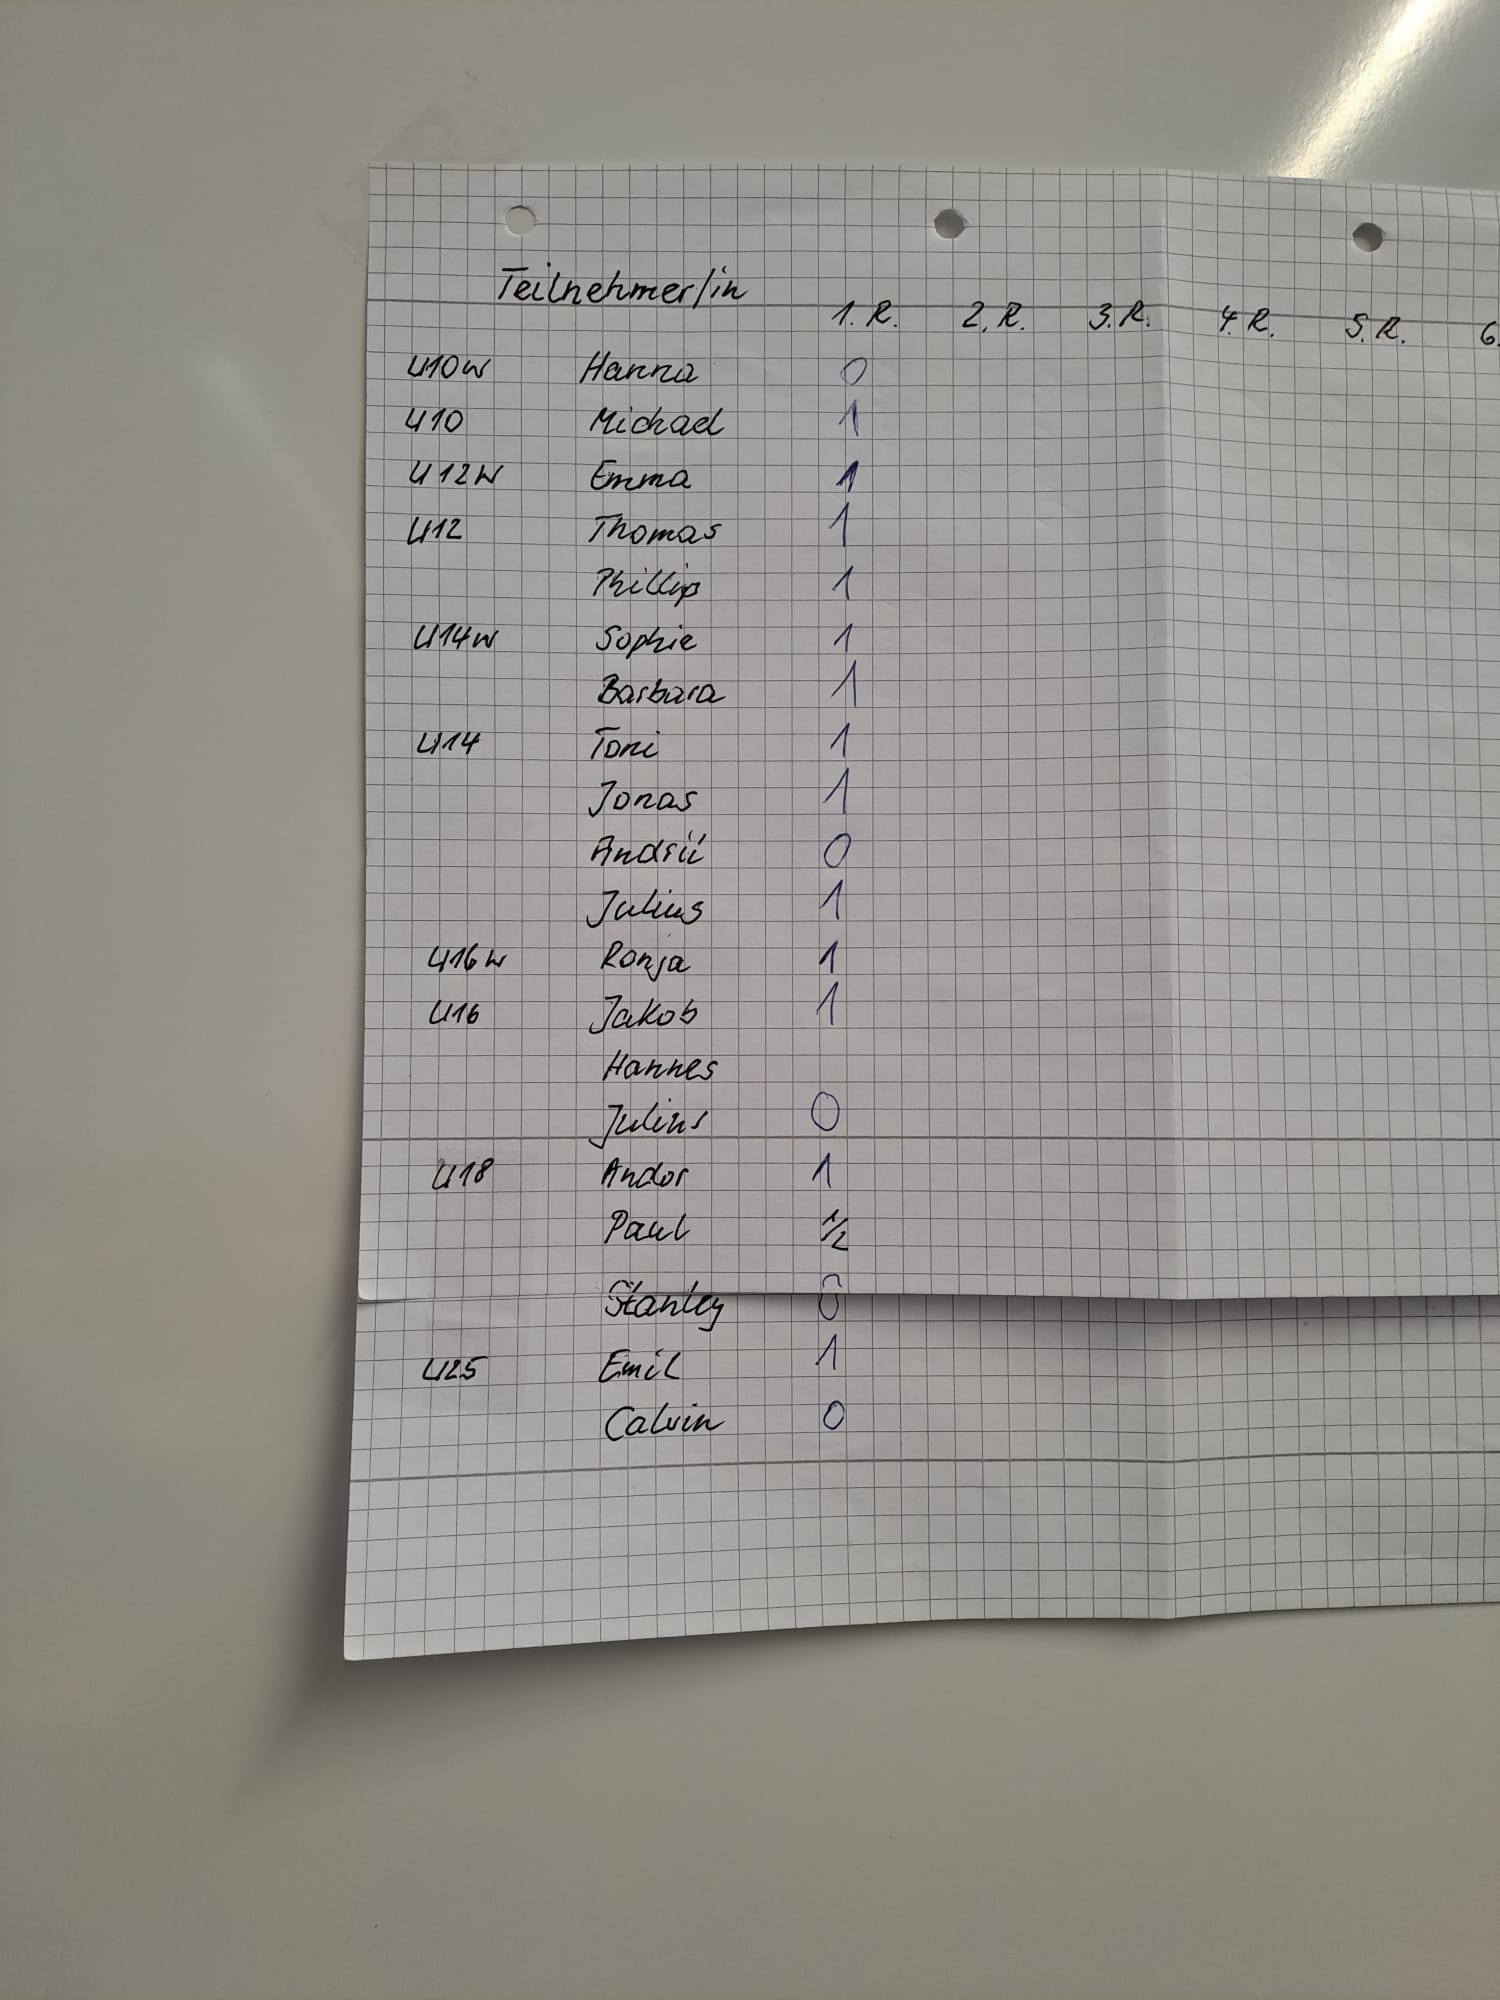 Teilnehmer/in 1. R. 2. R. 3. R. 4. R. 5. R. 6.
U10W Hanna 0
U10 Michael 1
U12W Emma 1
U12 Thomas 1
Phillip 1
U14W Sophie 1
Barbara 1
U14 Toni 1
Jonas 1
Andrii 0
Julius 1
U16W Ronja 1
U16 Jakob 1
Hannes
Julius 0
U18 Andor 1
Paul 1/2
Stanley 0
U25 Emil 1
Calvin 0